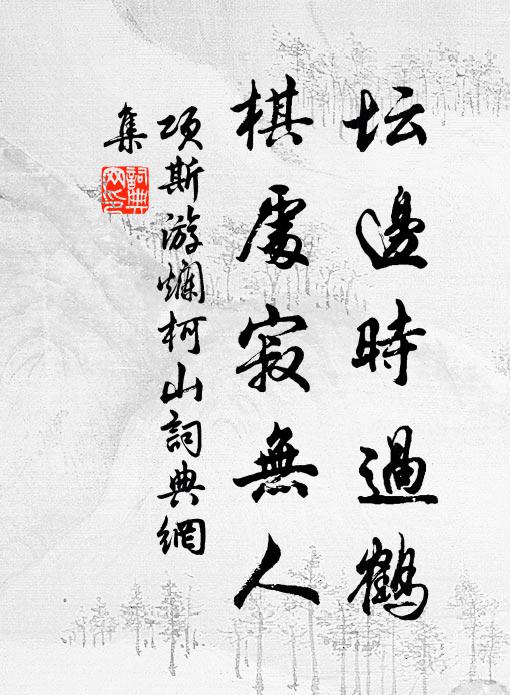 坛邊時過鶴
棋處寂無人
項斯游爛柯山詞典網
集
詞典網印